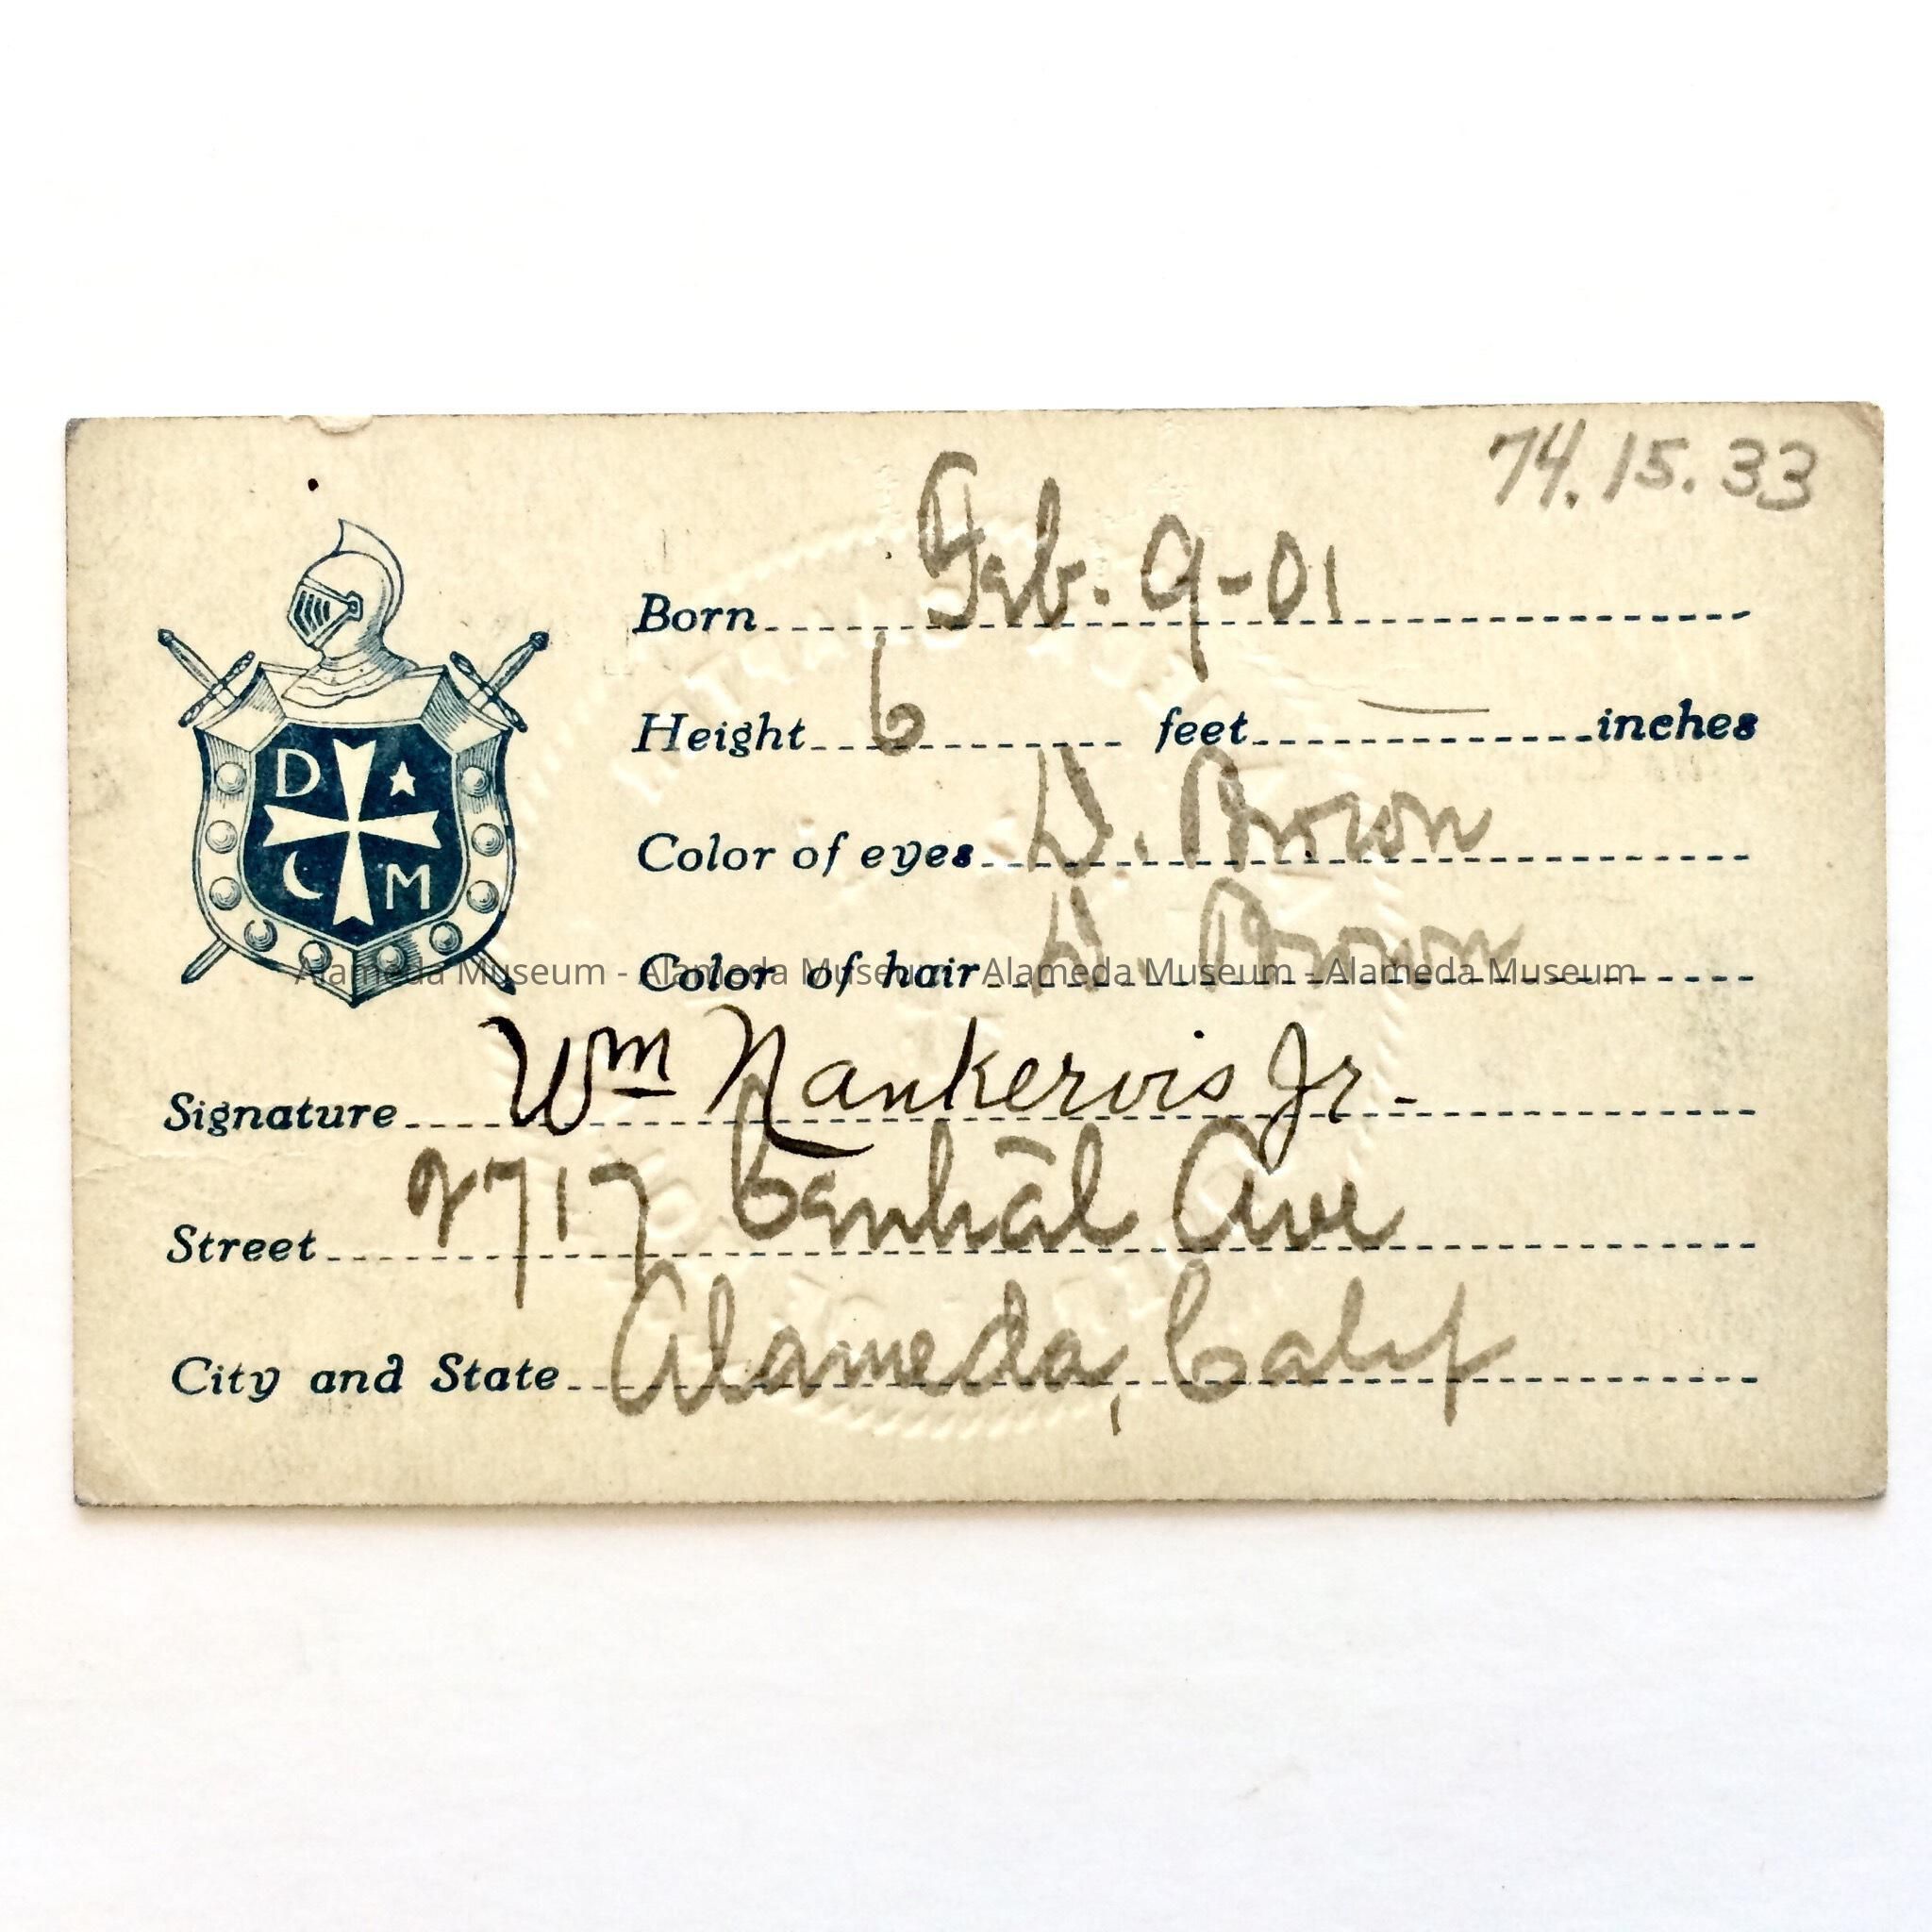 74.15.33
Born Feb. 9-01
Height 6 feet — inches
D
C M
Color of eyes D. Brown
Color of hair D. Brown
Alameda Museum - Alameda Museum - Alameda Museum - Alameda Museum
Signature Wm Nankervis Jr.
Street 2717 Central Ave
City and State Alameda, Calif